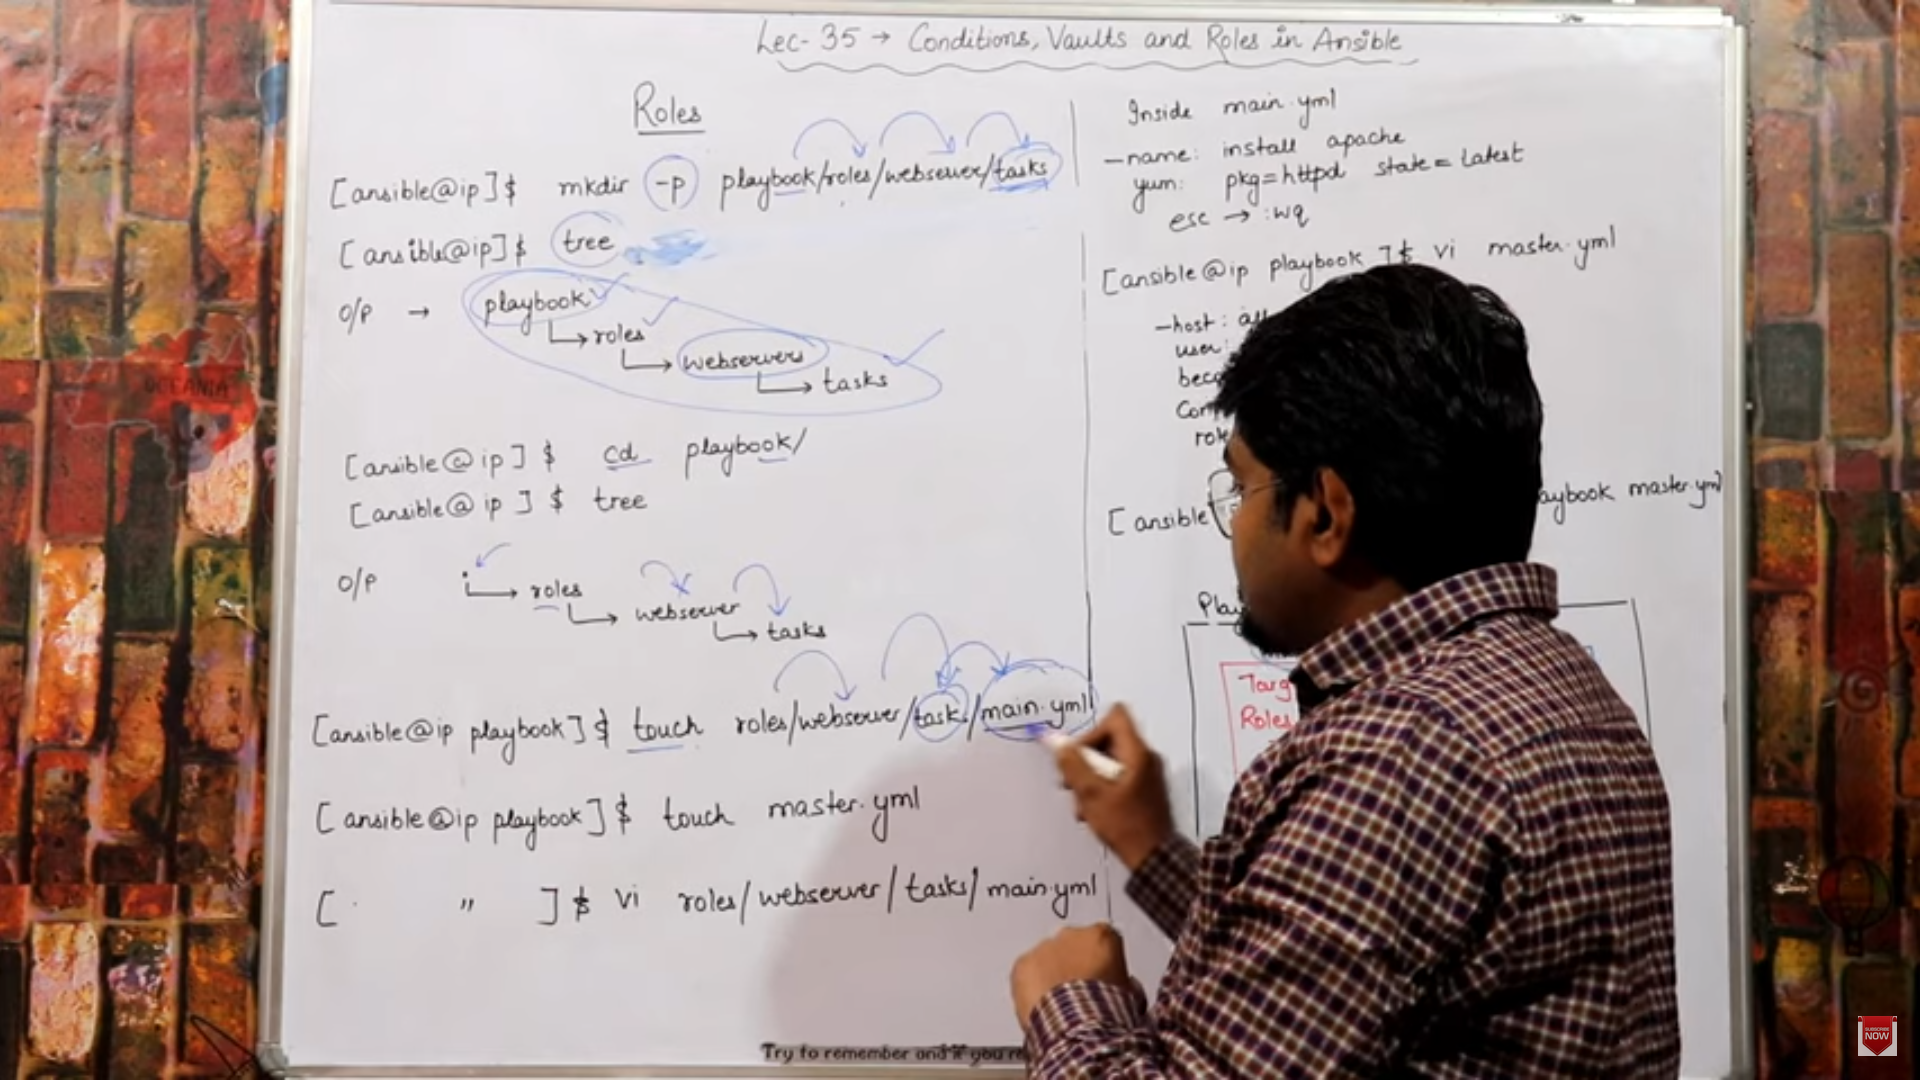 Lec- 35 → Conditions, Vaults and Roles in Ansible
Roles
[ansible@ip]$ mkdir -p playbook/roles/webserver/tasks
[ansible@ip]$ tree
O/P → playbook
roles
webservers
tasks
[ansible@ip] $ cd playbook/
[ansible@ip] $ tree
O/P .
roles
webserver
tasks
[ansible@ip playbook] $ touch roles/webserver/task/main.yml
[ansible@ip playbook] $ touch master.yml
[ " ] $ vi roles/webserver/tasks/main.yml
Inside main.yml
-name: install apache
yum: pkg=httpd state=latest
esc → :wq
[ansible@ip playbook]$ vi master.yml
-host:
user:
[ansible master.yml
Roles
OCEANIA
Try to remember and if you
SUBSCRIBE
NOW